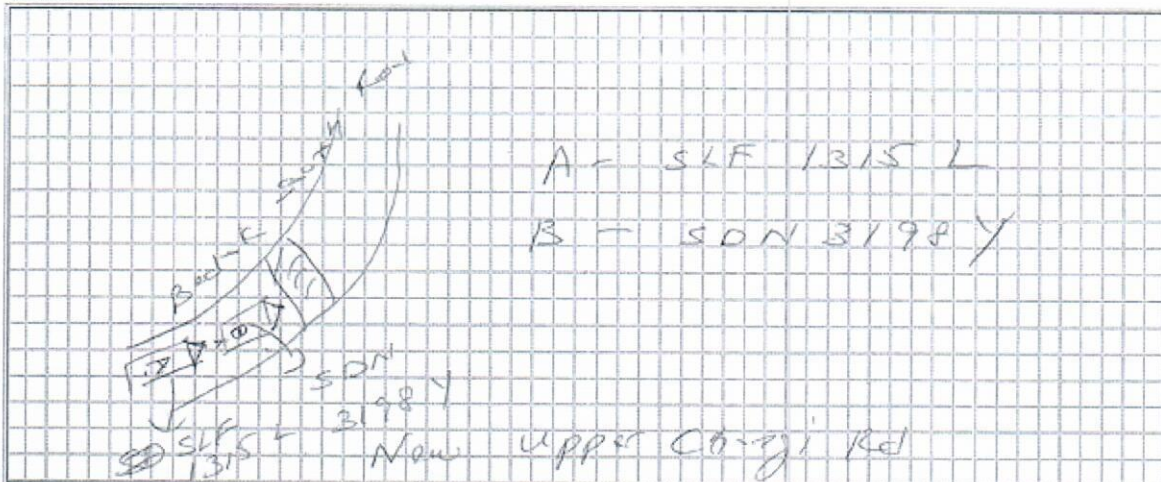 Road
North
Bedok
A - SLF 1315 L
B - SDN 3198 Y
A
B
SDN
3198 Y
SLF
1315 L
New Upper Changi Rd